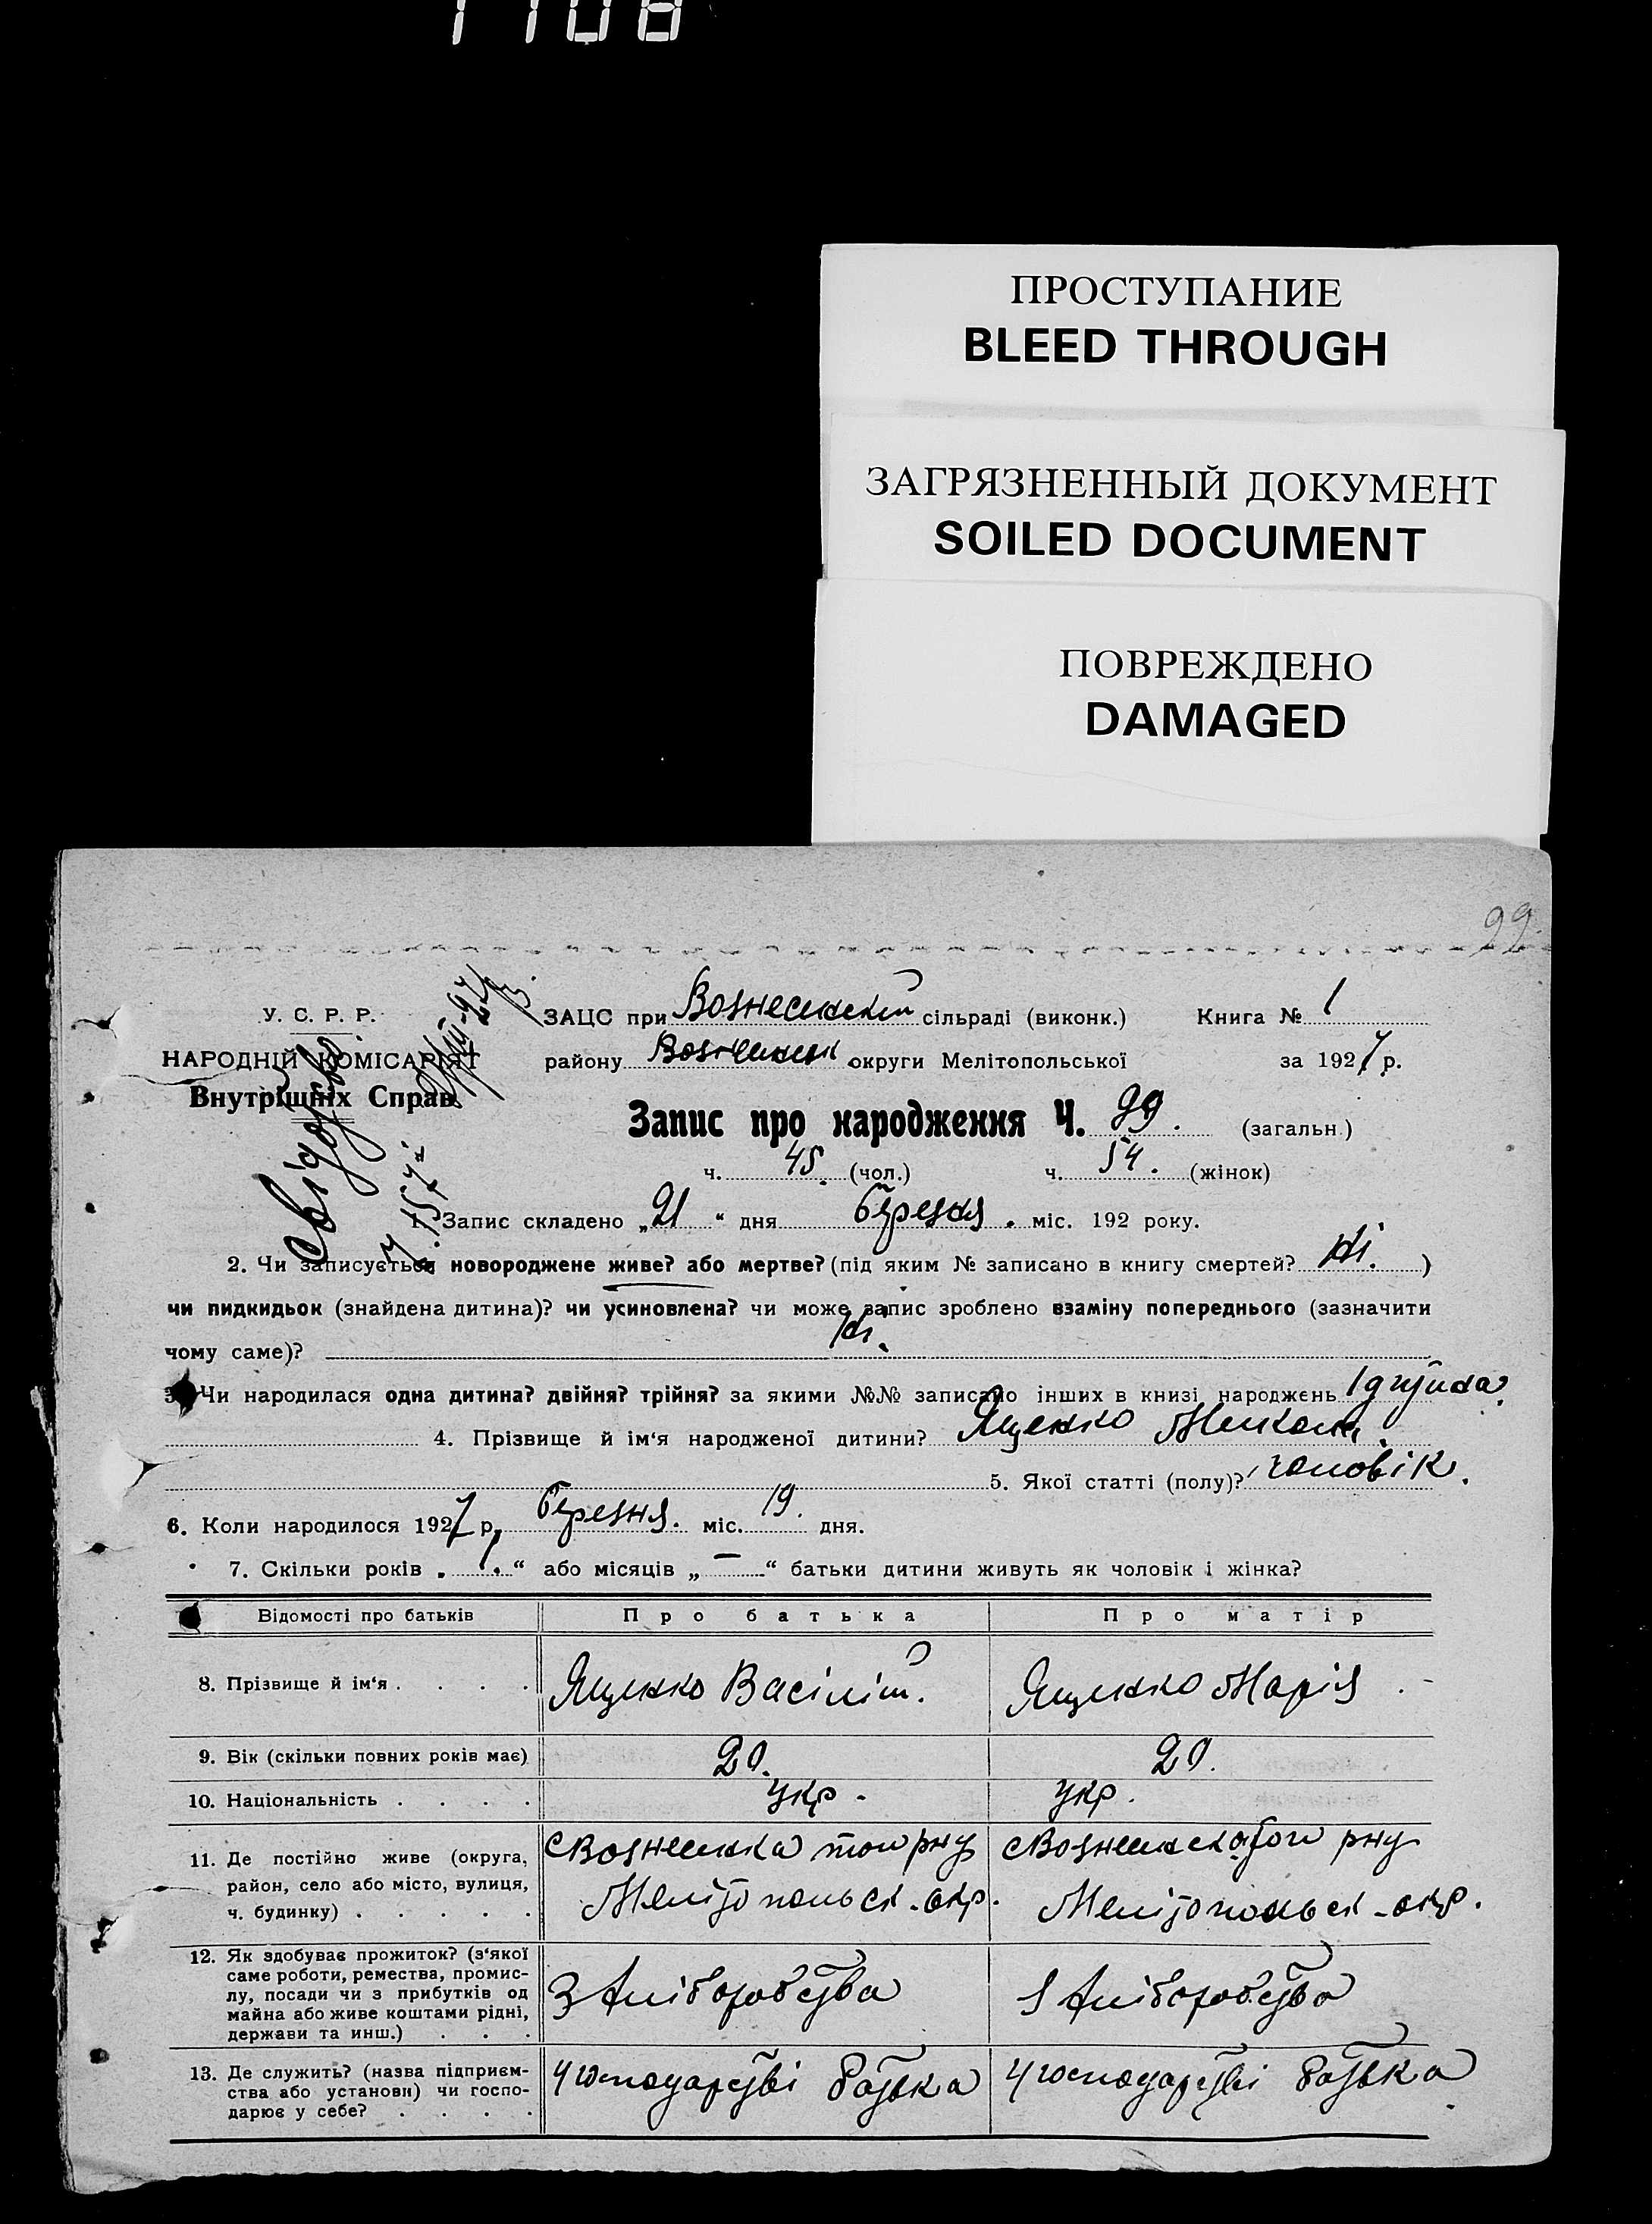 1108
ПРОСТУПАНИЕ
BLEED THROUGH
ЗАГРЯЗНЕННЫЙ ДОКУМЕНТ
SOILED DOCUMENT
ПОВРЕЖДЕНО
DAMAGED
99
У. С. Р. Р.
НАРОДНІЙ КОМІСАРІЯТ
Внутрішніх Справ
ЗАЦС при Вознесенский сільраді (виконк.) Книга № 1
району Вознесенськ округи Мелітопольської за 1927 р.
Запис про народження Ч. 99. (загальн.)
ч. 45. (чол.) ч. 54. (жінок)
1. Запис складено „21“ дня березня. міс. 192 року.
2. Чи записується новороджене живе? або мертве? (під яким № записано в книгу смертей? Ні. )
чи пидкидьок (знайдена дитина)? чи усиновлена? чи може запис зроблено взаміну попереднього (зазначити
чому саме)? Ні.
3. Чи народилася одна дитина? двійня? трійня? за якими №№ записано інших в книзі народжень 1
4. Прізвище й ім‘я народженої дитини? Ященко Микола.
5. Якої статті (полу)? чоловік.
6. Коли народилося 1927 р. березня. міс. 19. дня.
7. Скільки років „1.“ або місяців „—“ батьки дитини живуть як чоловік і жінка?
Відомості про батьків Про батька Про матір
8. Прізвище й ім‘я . . . . Ященко Васілій. Ященко Марія
9. Вік (скільки повних років має) 20. 20.
10. Національність . . . . укр. укр.
11. Де постійно живе (округа, район, село або місто, вулиця, ч. будинку) . . . . . с Вознесенка того рну Мелітопольськ. окр. с Вознесенка того рну Мелітопольськ. окр.
12. Як здобуває прожиток? (з‘якої саме роботи, ремества, промислу, посади чи з прибутків од майна або живе коштами рідні, держави та инш.) . . . З хліборобства З хліборобства
13. Де служить? (назва підприємства або установи) чи господарює у себе? . . . . У господарстві батька У господарстві батька